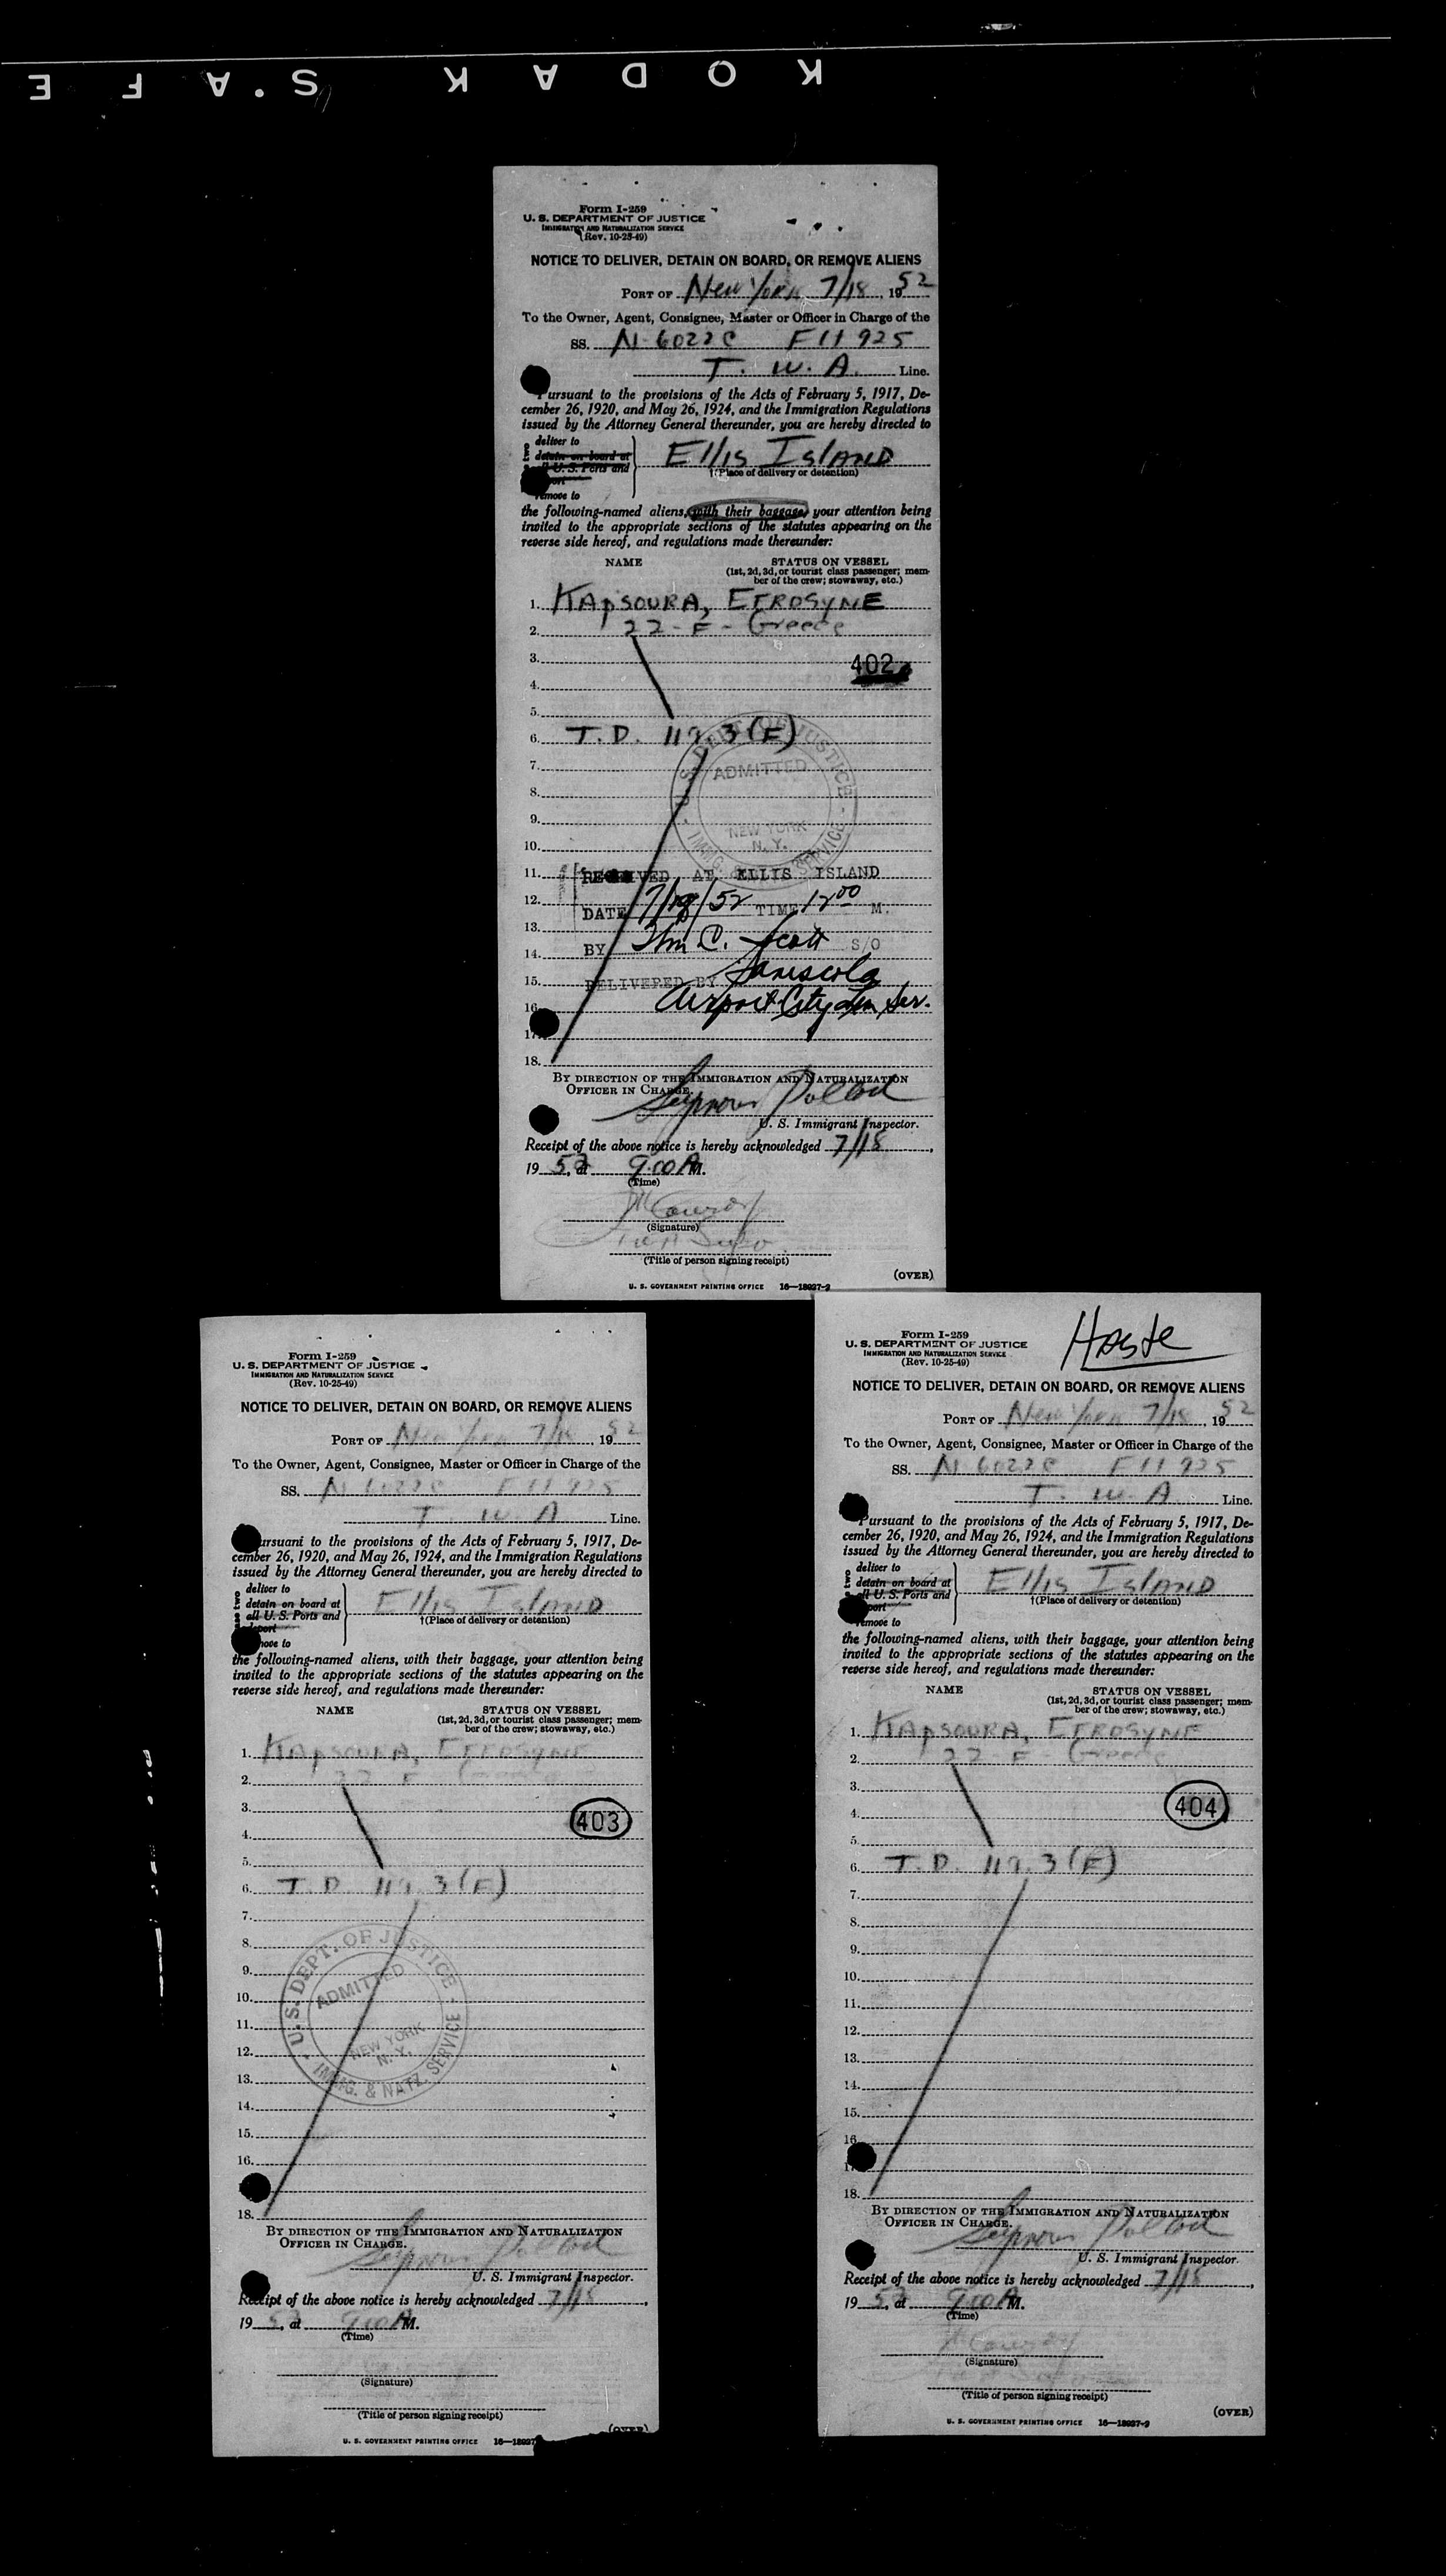 KODAK SAFE
Form I-259
U. S. DEPARTMENT OF JUSTICE
IMMIGRATION AND NATURALIZATION SERVICE
(Rev. 10-25-49)
NOTICE TO DELIVER, DETAIN ON BOARD, OR REMOVE ALIENS
PORT OF New York 7/18, 1952
To the Owner, Agent, Consignee, Master or Officer in Charge of the
SS. N-6022C F11 925
T. W. A. Line.
Pursuant to the provisions of the Acts of February 5, 1917, De-
cember 26, 1920, and May 26, 1924, and the Immigration Regulations
issued by the Attorney General thereunder, you are hereby directed to
deliver to
detain on board at
all U. S. Ports and
remove to
Ellis Island
†(Place of delivery or detention)
the following-named aliens, with their baggage, your attention being
invited to the appropriate sections of the statutes appearing on the
reverse side hereof, and regulations made thereunder:
NAME STATUS ON VESSEL
(1st, 2d, 3d, or tourist class passenger; mem-
ber of the crew; stowaway, etc.)
1. KApsOURA, EFROSYNE
2. 22 - F - Greece
3. 402
4.
5.
6. T.D. 119.3 (E)
7.
8.
9.
10.
U. S. DEPT. OF JUSTICE
ADMITTED
NEW YORK
N. Y.
IMMG. & NATZ. SERVICE
11. RECEIVED AT ELLIS ISLAND
12. DATE 7/18/52 TIME 12 00 M.
13.
14. BY Wm C. Scott S/O
15. DELIVERED BY
16. Airport City Ser.
17.
18.
BY DIRECTION OF THE IMMIGRATION AND NATURALIZATION
OFFICER IN CHARGE.
Seymour Pollack
U. S. Immigrant Inspector.
Receipt of the above notice is hereby acknowledged 7/18,
1952, at 9:00 AM.
(Time)
(Signature)
(Title of person signing receipt)
(OVER)
U. S. GOVERNMENT PRINTING OFFICE 16—18937-2
Form I-259
U. S. DEPARTMENT OF JUSTICE
IMMIGRATION AND NATURALIZATION SERVICE
(Rev. 10-25-49)
NOTICE TO DELIVER, DETAIN ON BOARD, OR REMOVE ALIENS
PORT OF New York 7/18, 1952
To the Owner, Agent, Consignee, Master or Officer in Charge of the
SS. N 6022C F11 925
T. W. A Line.
Pursuant to the provisions of the Acts of February 5, 1917, De-
cember 26, 1920, and May 26, 1924, and the Immigration Regulations
issued by the Attorney General thereunder, you are hereby directed to
deliver to
detain on board at
all U. S. Ports and
deport
remove to
Ellis Island
†(Place of delivery or detention)
the following-named aliens, with their baggage, your attention being
invited to the appropriate sections of the statutes appearing on the
reverse side hereof, and regulations made thereunder:
NAME STATUS ON VESSEL
(1st, 2d, 3d, or tourist class passenger; mem-
ber of the crew; stowaway, etc.)
1. KApsOURA, EFROSYNE
2. 22 F Greece
3. 403
4.
5.
6. T.D. 119.3 (E)
7.
8.
9.
10.
11.
12.
13.
U. S. DEPT. OF JUSTICE
ADMITTED
NEW YORK
N. Y.
IMMIG. & NATZ. SERVICE
14.
15.
16.
18.
BY DIRECTION OF THE IMMIGRATION AND NATURALIZATION
OFFICER IN CHARGE.
Seymour Pollack
U. S. Immigrant Inspector.
Receipt of the above notice is hereby acknowledged 7/18,
1952, at 9:00 AM.
(Time)
(Signature)
(Title of person signing receipt)
(OVER)
U. S. GOVERNMENT PRINTING OFFICE 16—18937
Haste
Form I-259
U. S. DEPARTMENT OF JUSTICE
IMMIGRATION AND NATURALIZATION SERVICE
(Rev. 10-25-49)
NOTICE TO DELIVER, DETAIN ON BOARD, OR REMOVE ALIENS
PORT OF New York 7/18, 1952
To the Owner, Agent, Consignee, Master or Officer in Charge of the
SS. N 6022C F11 925
T. W. A Line.
Pursuant to the provisions of the Acts of February 5, 1917, De-
cember 26, 1920, and May 26, 1924, and the Immigration Regulations
issued by the Attorney General thereunder, you are hereby directed to
deliver to
detain on board at
all U. S. Ports and
deport
remove to
Ellis Island
†(Place of delivery or detention)
the following-named aliens, with their baggage, your attention being
invited to the appropriate sections of the statutes appearing on the
reverse side hereof, and regulations made thereunder:
NAME STATUS ON VESSEL
(1st, 2d, 3d, or tourist class passenger; mem-
ber of the crew; stowaway, etc.)
1. KApsOURA, EFROSYNE
2. 22 - F - Greece
3.
4. 404
5.
6. T.D. 119.3 (E)
7.
8.
9.
10.
11.
12.
13.
14.
15.
16.
17.
18.
BY DIRECTION OF THE IMMIGRATION AND NATURALIZATION
OFFICER IN CHARGE.
Seymour Pollack
U. S. Immigrant Inspector.
Receipt of the above notice is hereby acknowledged 7/18,
1952, at 9:00 AM.
(Time)
(Signature)
(Title of person signing receipt)
(OVER)
U. S. GOVERNMENT PRINTING OFFICE 16—18937-2